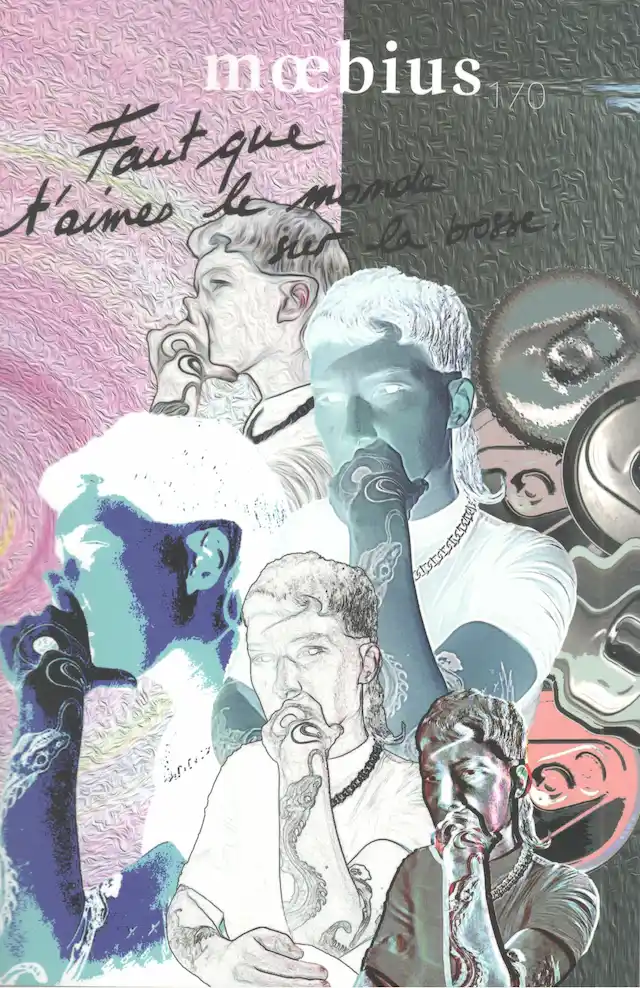 mœbius
170
Faut que
t'aimes le monde
sur la bosse.